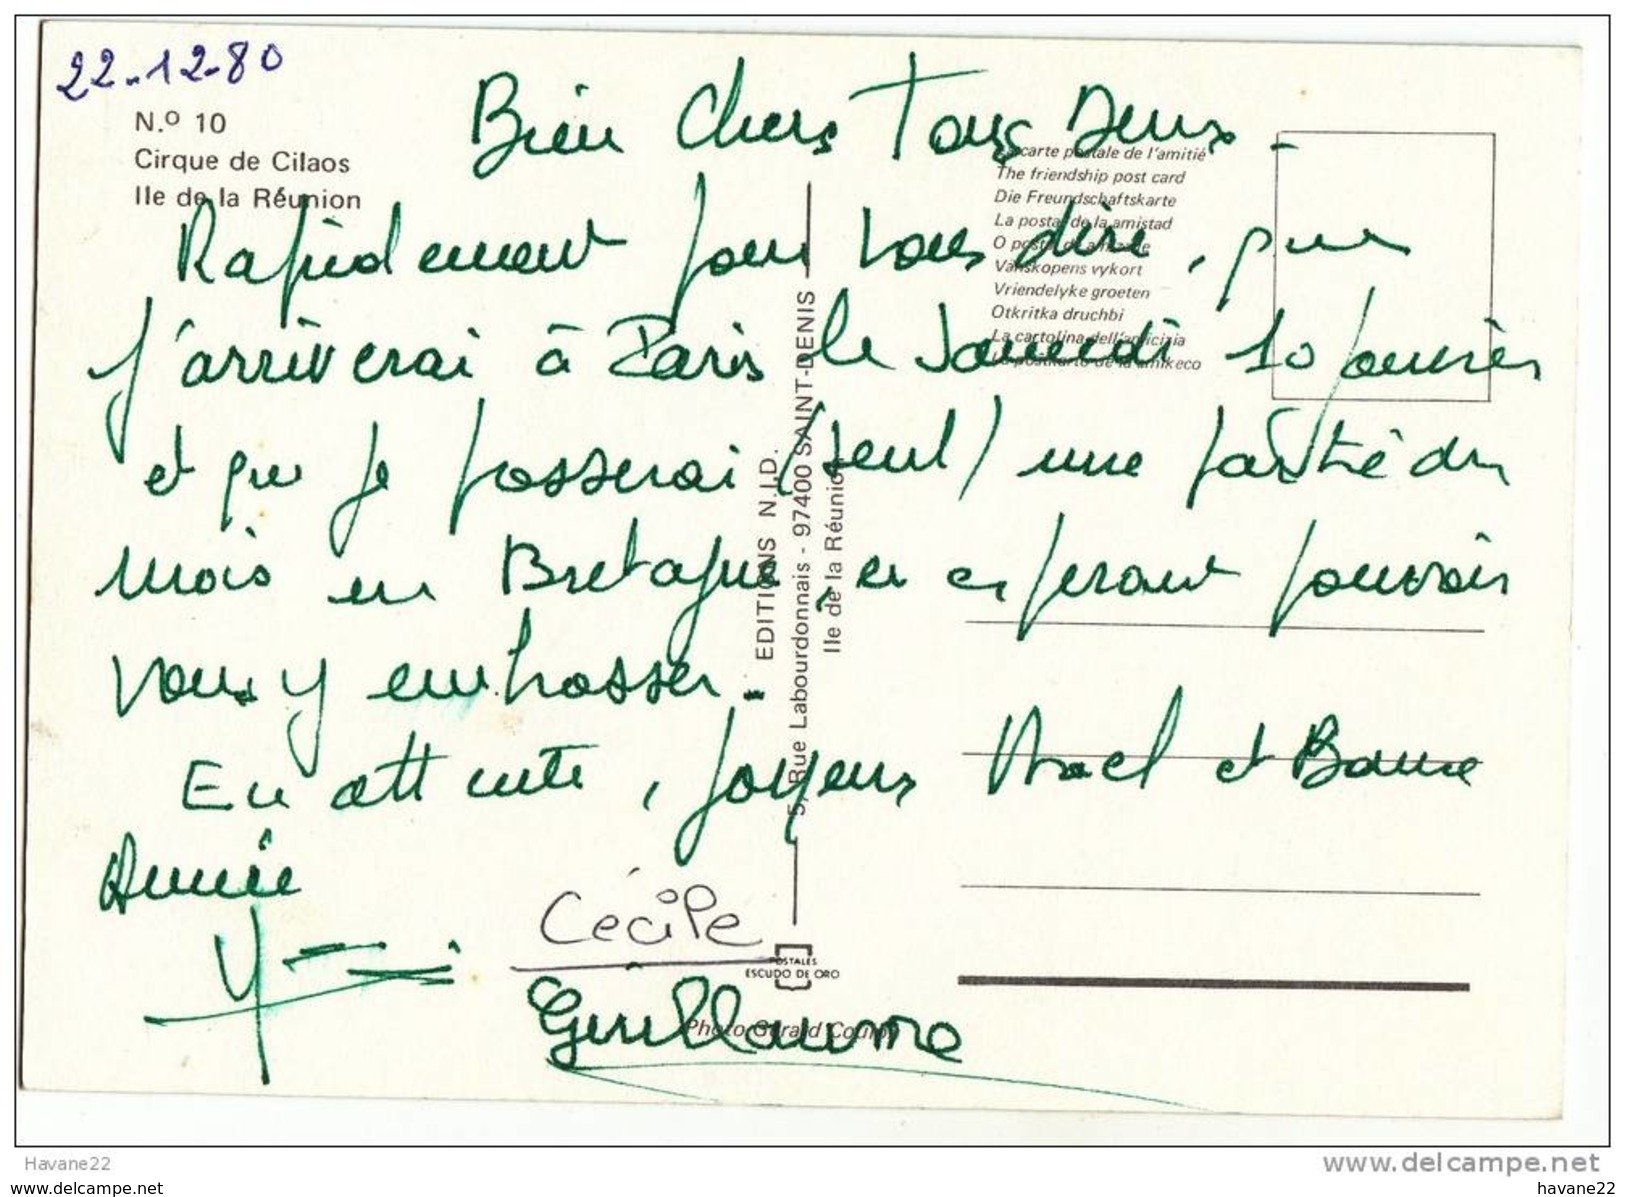 22-12-80
N.º 10
Cirque de Cilaos
Ile de la Réunion
Bien Chers Tous Deux -
La carte postale de l'amitié
The friendship post card
Die Freundschaftskarte
La postal de la amistad
O postal da amizade
Vänskopens vykort
Vriendelyke groeten
Otkritka druchbi
La cartolina dell'amicizia
La postkarto de la amikeco
Rapidement pour vous dire, que
j'arriverai à Paris le Samedi 10 Janvier
et que je passerai (seul) une partie du
mois en Bretagne, en espérant pouvoir
vous y embrasser -
En attente, joyeux Noël et Bonne
Année
Cécile
Guillaume
EDITIONS N.I.D.
5, Rue Labourdonnais - 97400 SAINT-DENIS
Ile de la Réunion
POSTALES
ESCUDO DE ORO
Photo Gérard
Havane22
www.delcampe.net
havane22
www.delcampe.net
havane22